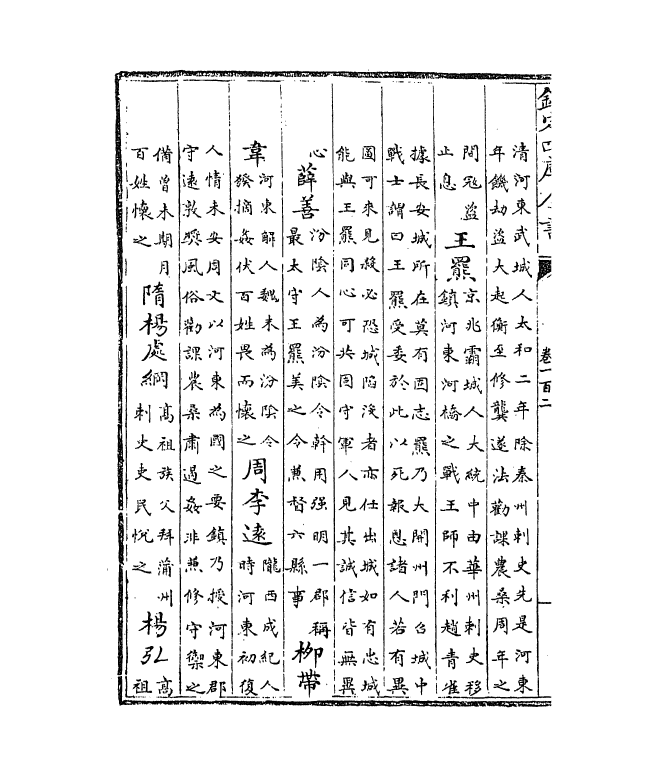 欽定四庫全書 卷一百二
清河東武城人太和二年除秦州刺史先是河東
年饑劫盜大起衡至修龔遂法勸課農桑周年之
間冦盜
止息
王羆
京兆霸城人大統中由華州刺史移
鎮河東河橋之戰王師不利趙青雀
據長安城所在莫有固志羆乃大開州門召城中
戰士謂曰王羆受委於此以死報恩諸人若有異
圖可來見殺必恐城陷没者亦任出城如有忠城
能與王羆同心可共固守軍人見其誠信皆無異
心
薛善
汾陰人為汾陰令幹用强明一郡稱
最太守王羆美之令兼督六縣事
柳帶
韋
河東解人魏末為汾陰令
發摘姦伏百姓畏而懷之
周李逺
隴西成紀人
時河東初復
人情未安周文以河東為國之要鎮乃授河東郡
守逺敦奬風俗勸課農桑肅遏姦非兼修守禦之
備曾未期月
百姓懷之
隋楊處綱
髙祖族父拜蒲州
刺史吏民悅之
楊弘
髙
祖